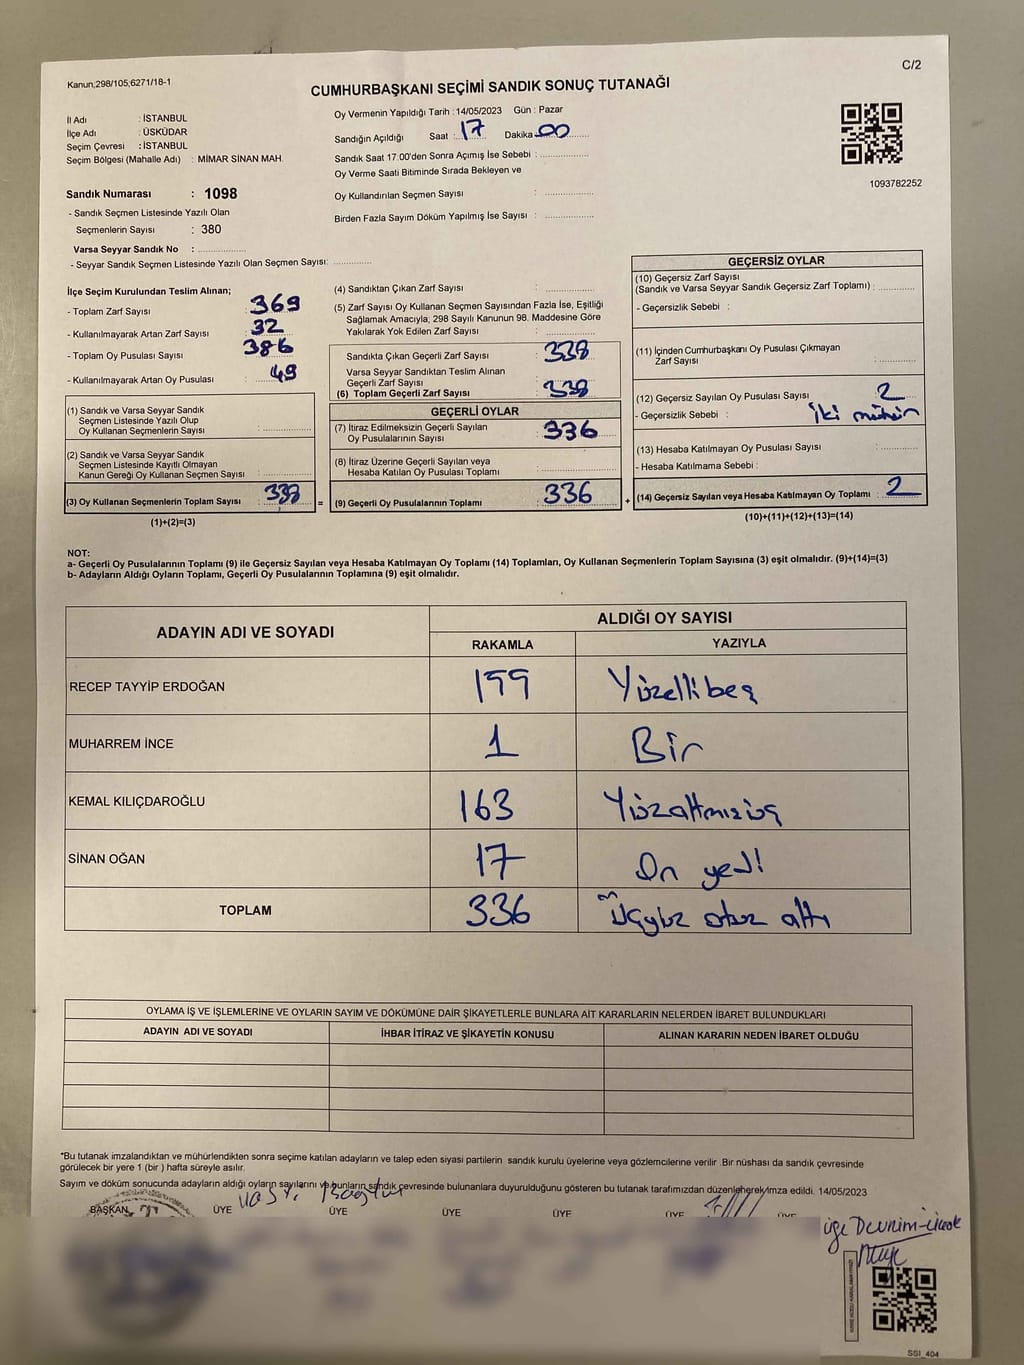 Kanun;298/105;6271/18-1
C/2
CUMHURBAŞKANI SEÇİMİ SANDIK SONUÇ TUTANAĞI
İl Adı : İSTANBUL
İlçe Adı : ÜSKÜDAR
Seçim Çevresi : İSTANBUL
Seçim Bölgesi (Mahalle Adı) : MİMAR SİNAN MAH.
Sandık Numarası : 1098
- Sandık Seçmen Listesinde Yazılı Olan
Seçmenlerin Sayısı : 380
Varsa Seyyar Sandık No :
- Seyyar Sandık Seçmen Listesinde Yazılı Olan Seçmen Sayısı:
Oy Vermenin Yapıldığı Tarih : 14/05/2023 Gün : Pazar
Sandığın Açıldığı Saat : 17 Dakika 00
Sandık Saat 17:00'den Sonra Açımış İse Sebebi :
Oy Verme Saati Bitiminde Sırada Bekleyen ve
Oy Kullandırılan Seçmen Sayısı :
Birden Fazla Sayım Döküm Yapılmış İse Sayısı :
1093782252
İlçe Seçim Kurulundan Teslim Alınan;
- Toplam Zarf Sayısı : 369
- Kullanılmayarak Artan Zarf Sayısı : 32
- Toplam Oy Pusulası Sayısı : 386
- Kullanılmayarak Artan Oy Pusulası : 49
(1) Sandık ve Varsa Seyyar Sandık
Seçmen Listesinde Yazılı Olup
Oy Kullanan Seçmenlerin Sayısı :
(2) Sandık ve Varsa Seyyar Sandık
Seçmen Listesinde Kayıtlı Olmayan
Kanun Gereği Oy Kullanan Seçmen Sayısı :
(3) Oy Kullanan Seçmenlerin Toplam Sayısı : 338
(1)+(2)=(3)
(4) Sandıktan Çıkan Zarf Sayısı :
(5) Zarf Sayısı Oy Kullanan Seçmen Sayısından Fazla İse, Eşitliği
Sağlamak Amacıyla, 298 Sayılı Kanunun 98. Maddesine Göre
Yakılarak Yok Edilen Zarf Sayısı :
Sandıkta Çıkan Geçerli Zarf Sayısı : 338
Varsa Seyyar Sandıktan Teslim Alınan
Geçerli Zarf Sayısı :
(6) Toplam Geçerli Zarf Sayısı : 338
GEÇERLİ OYLAR
(7) İtiraz Edilmeksizin Geçerli Sayılan
Oy Pusulalarının Sayısı : 336
(8) İtiraz Üzerine Geçerli Sayılan veya
Hesaba Katılan Oy Pusulası Toplamı :
= (9) Geçerli Oy Pusulalarının Toplamı : 336
GEÇERSİZ OYLAR
(10) Geçersiz Zarf Sayısı
(Sandık ve Varsa Seyyar Sandık Geçersiz Zarf Toplamı) :
- Geçersizlik Sebebi :
(11) İçinden Cumhurbaşkanı Oy Pusulası Çıkmayan
Zarf Sayısı :
(12) Geçersiz Sayılan Oy Pusulası Sayısı : 2
- Geçersizlik Sebebi : iki mühür
(13) Hesaba Katılmayan Oy Pusulası Sayısı :
- Hesaba Katılmama Sebebi :
+ (14) Geçersiz Sayılan veya Hesaba Katılmayan Oy Toplamı : 2
(10)+(11)+(12)+(13)=(14)
NOT:
a- Geçerli Oy Pusulalarının Toplamı (9) ile Geçersiz Sayılan veya Hesaba Katılmayan Oy Toplamı (14) Toplamları, Oy Kullanan Seçmenlerin Toplam Sayısına (3) eşit olmalıdır. (9)+(14)=(3)
b- Adayların Aldığı Oyların Toplamı, Geçerli Oy Pusulalarının Toplamına (9) eşit olmalıdır.
ADAYIN ADI VE SOYADI
ALDIĞI OY SAYISI
RAKAMLA YAZIYLA
RECEP TAYYİP ERDOĞAN 155 Yüzellibeş
MUHARREM İNCE 1 Bir
KEMAL KILIÇDAROĞLU 163 Yüzaltmışüç
SİNAN OĞAN 17 On yedi
TOPLAM 336 üçyüz otuz altı
OYLAMA İŞ VE İŞLEMLERİNE VE OYLARIN SAYIM VE DÖKÜMÜNE DAİR ŞİKAYETLERLE BUNLARA AİT KARARLARIN NELERDEN İBARET BULUNDUKLARI
ADAYIN ADI VE SOYADI İHBAR İTİRAZ VE ŞİKAYETİN KONUSU ALINAN KARARIN NEDEN İBARET OLDUĞU
*Bu tutanak imzalandıktan ve mühürlendikten sonra seçime katılan adayların ve talep eden siyasi partilerin sandık kurulu üyelerine veya gözlemcilerine verilir .Bir nüshası da sandık çevresinde
görülecek bir yere 1 (bir ) hafta süreyle asılır.
Sayım ve döküm sonucunda adayların aldığı oyların sayılarını ve bunların sandık çevresinde bulunanlara duyurulduğunu gösteren bu tutanak tarafımızdan düzenlenerek imza edildi. 14/05/2023
BAŞKAN ÜYE ÜYE ÜYE ÜYE ÜYE ÜYE
SSI_404